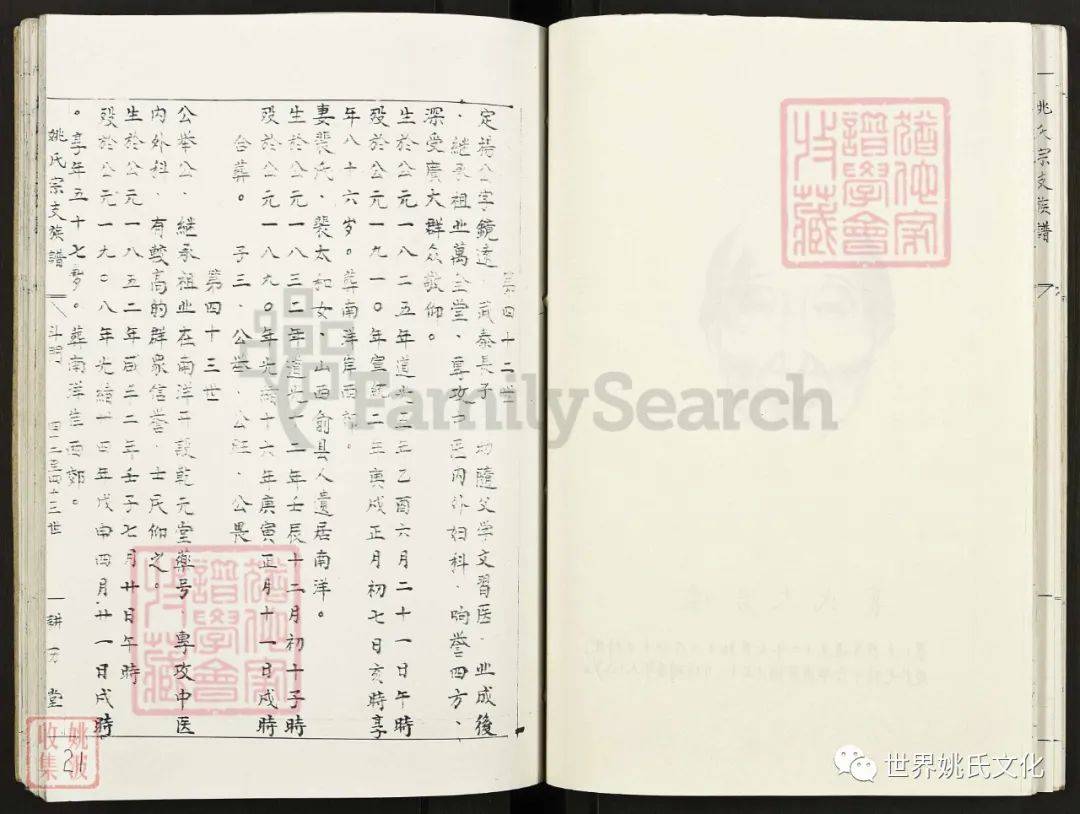 第四十二世
定揚公字鏡遠·武泰長子·幼隨父学文習医·业成後
·继承祖业萬全堂·專攻中医内外妇科·响誉四方、
深受廣大群众敬仰。
生於公元一八二五年道光二五年乙酉六月二十一日午時
殁於公元一九一〇年宣統二年庚戍正月初七日亥時享
年八十六岁。葬南洋岸西郊。
妻裴氏、裴太和女·山西俞县人遺居南洋。
生於公元一八三二年道光一二年壬辰十二月初十子時
殁於公元一八九〇年光緒十六年庚寅正月十一日戍時
合葬。子三·公举·公旺·公畏
第四十三世
公举公·继承祖业在南洋开設乾元堂藥号·專攻中医
内外科·有較高的群眾信誉·士民仰之。
生於公元一八五二年咸丰二年壬子七月廿日午時
殁於公元一九〇八年光緒卅四年戊申四月廿一日戍時
。享年五十七岁。葬南洋岸西郊。
姚氏宗支族譜
四十二至四十三世
堂
21
姚波收集
猶他家譜學會收藏
FamilySearch
猶他家譜學會收藏
姚氏宗支族譜
世界姚氏文化